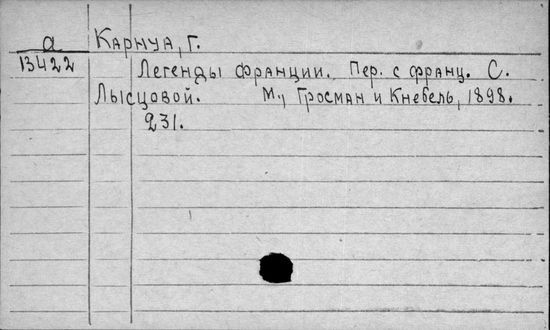 а Карнуа, Г.
13422 Легенды Франции. Пер. с франц. С.
Лысцовой. М., Гросман и Кнебель, 1898.
231.